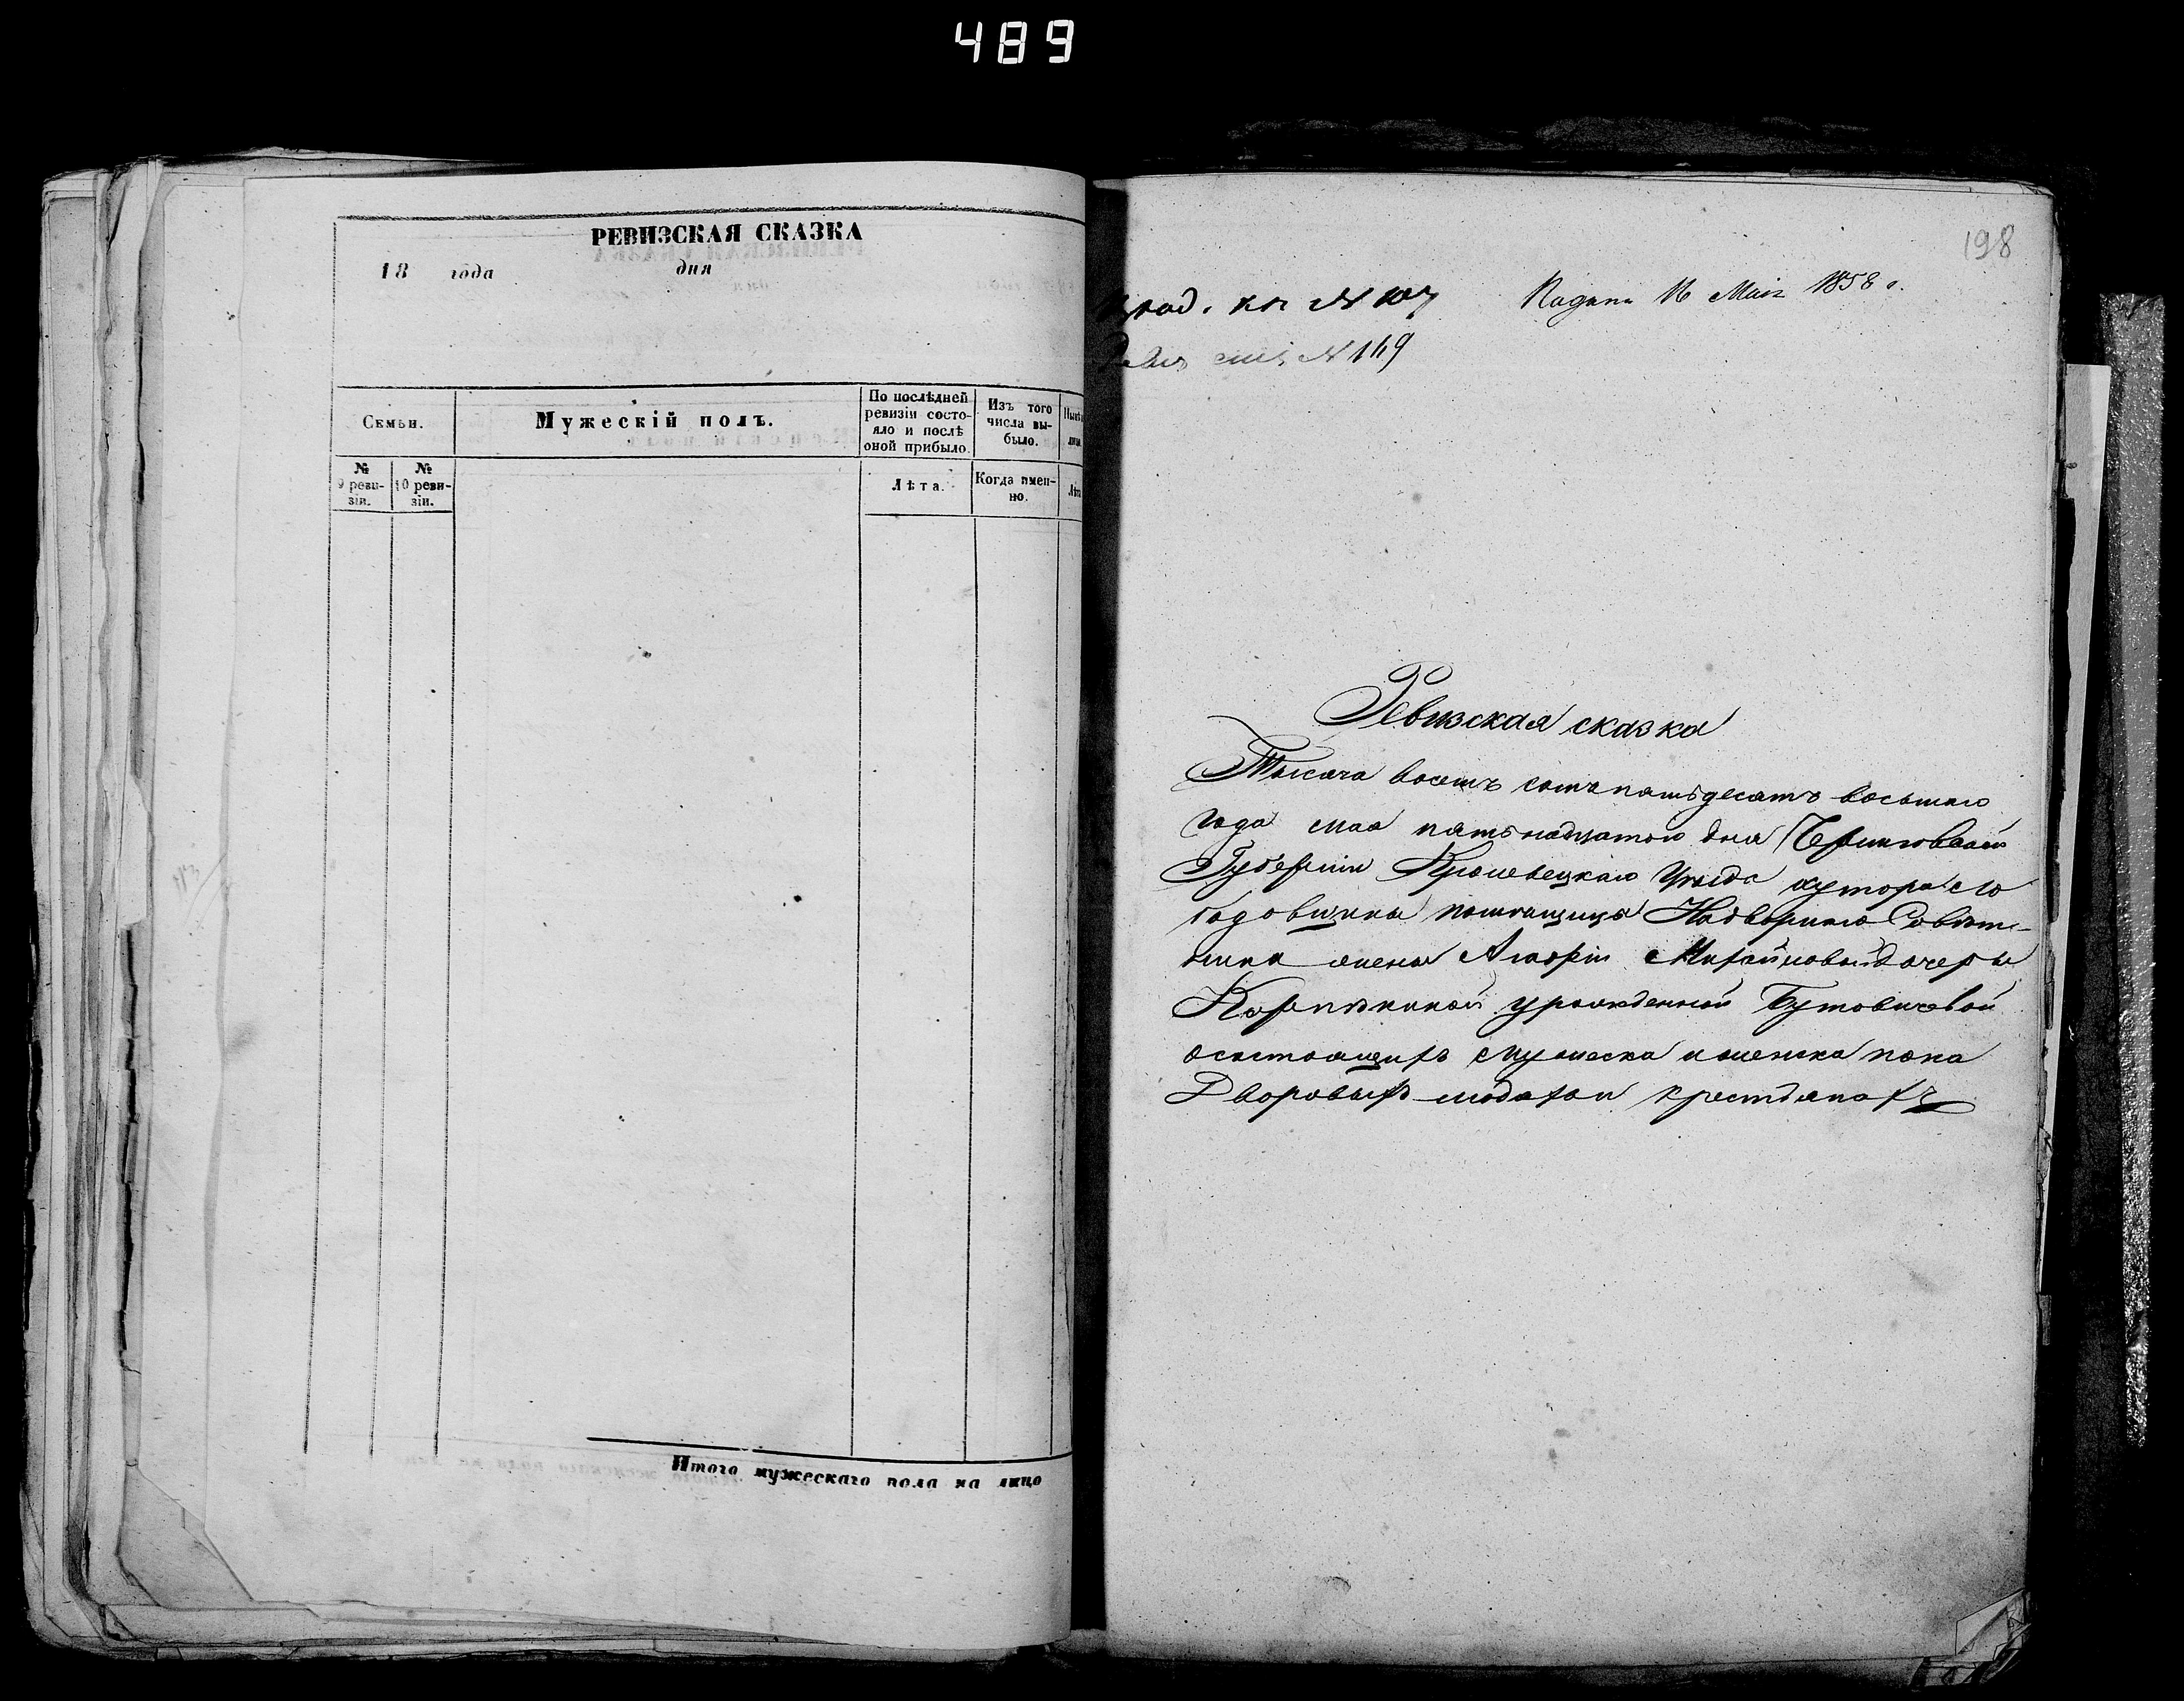 489
РЕВИЗСКАЯ СКАЗКА
18 года дня
Семьи.
Мужескій полъ.
По послѣдней
ревизіи состо-
яло и послѣ
оной прибыло.
Изъ того
числа вы-
было.
№
9 реви-
зіи.
№
10 реви-
зіи.
Лѣта.
Когда имен-
но.
Итого мужескаго пола на лицо
198
кн № 107
Подана 16 Маія 1858 г.
№ 149
Ревизская сказка
Тысяча восемъ сотъ пятьдесятъ восьмаго
года мая пятьнадцатого дня Черниговской
Губерніи Кролевецкаго Уѣзда хутора
помѣщицы Надворнаго Совѣт-
ника жены Михайловой дочеры
урожденной Бутовичевой
осостоящихъ мужеска и женска пола
Дворовыхъ людяхъ и крестьянахъ